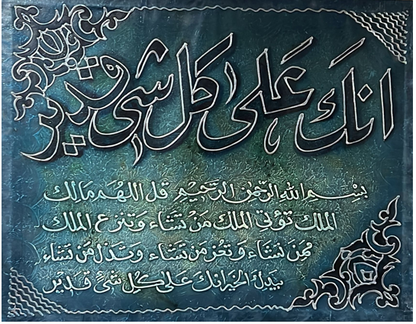 انك على كل شئ قدير
بسم الله الرحمن الرحيم قل اللهم مالك
الملك تؤتي الملك من تشاء وتنزع الملك
ممن تشاء وتعز من تشاء وتذل من تشاء
بيدك الخير انك على كل شئ قدير